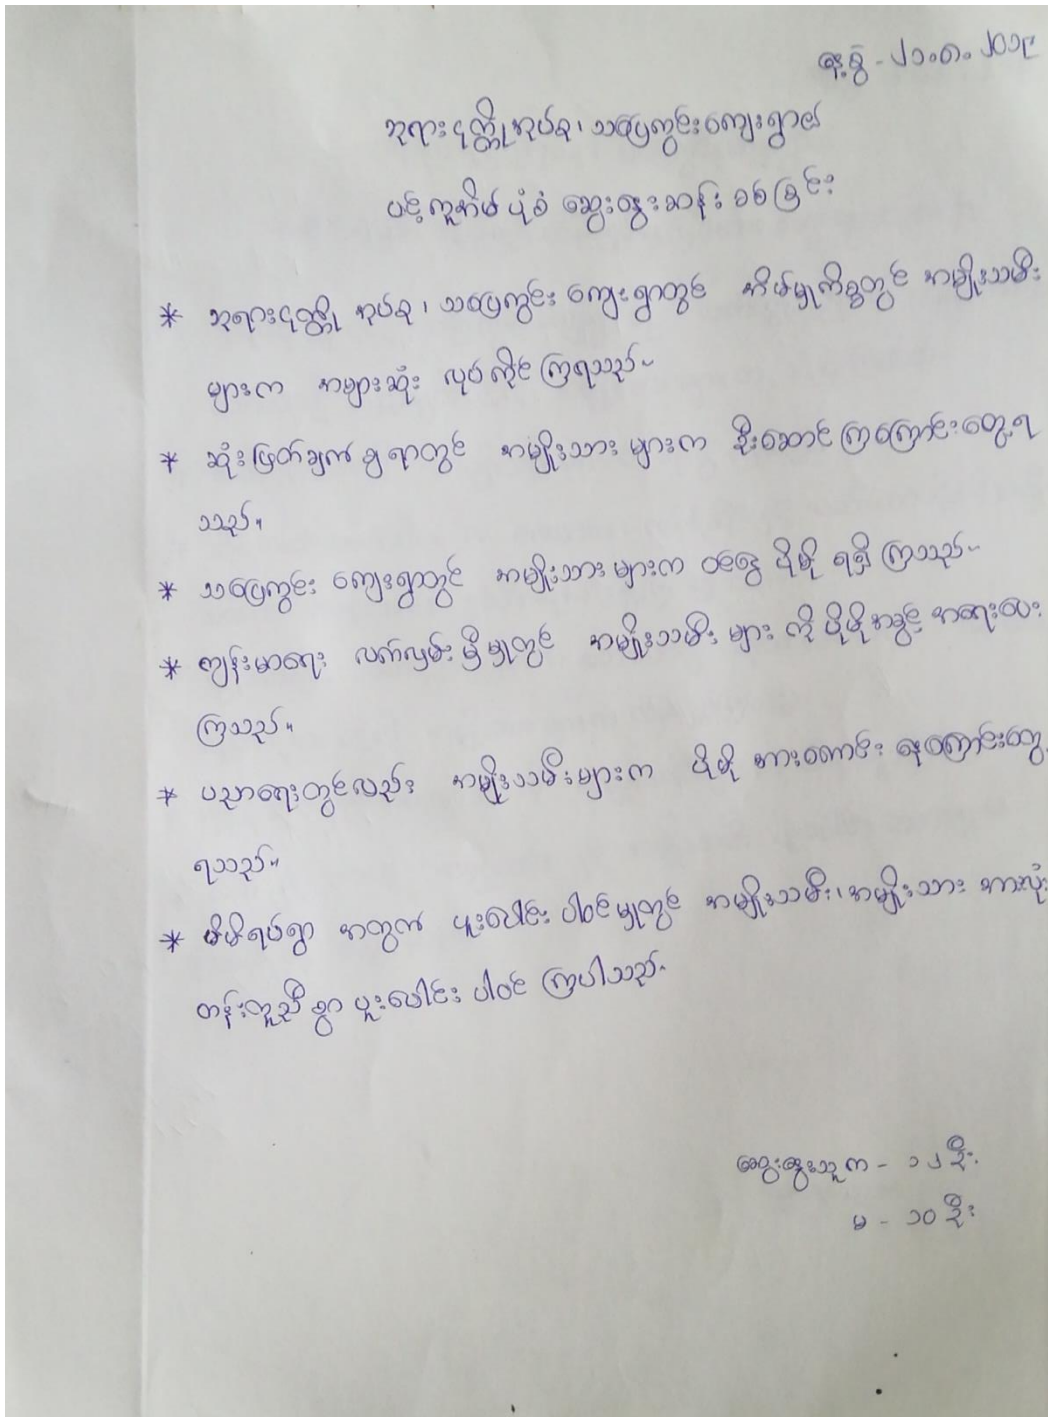 နေ့စွဲ - ၂၁.၈.၂၀၁၉
ဘုရားငုတ္တိုအုပ်စု၊ သပြေကွင်းကျေးရွာ၏
ပင့်ကူအိမ်ပုံစံ ဆွေးနွေးဆန်းစစ်ခြင်း
* ဘုရားငုတ္တို အုပ်စု၊ သပြေကွင်း ကျေးရွာတွင် အိမ်မှုကိစ္စတွင် အမျိုးသမီး
များက အများဆုံး လုပ်ကိုင်ကြရသည်။
* ဆုံးဖြတ်ချက်ချရာတွင် အမျိုးသား များက ဦးဆောင်ကြကြောင်းတွေ့ရ
သည်။
* သပြေကွင်း ကျေးရွာတွင် အမျိုးသား များက ဝင်ငွေ ပိုမို ရရှိကြသည်။
* ကျန်းမာရေး လက်လှမ်းမှီမှုတွင် အမျိုးသမီး များ ကို ပိုမိုအခွင့် အရေးပေး
ကြသည်။
* ပညာရေးတွင်လည်း အမျိုးသမီးများက ပိုမို အားကောင်း နေကြောင်းတွေ့
ရသည်။
* မိမိရပ်ရွာ အတွက် ပူးပေါင်း ပါဝင်မှုတွင် အမျိုးသမီး၊ အမျိုးသား အားလုံး
တန်းတူညီ စွာ ပူးပေါင်း ပါဝင် ကြပါသည်။
ဆွေးနွေးသူ က - ၁၂ ဦး
မ - ၁၀ ဦး